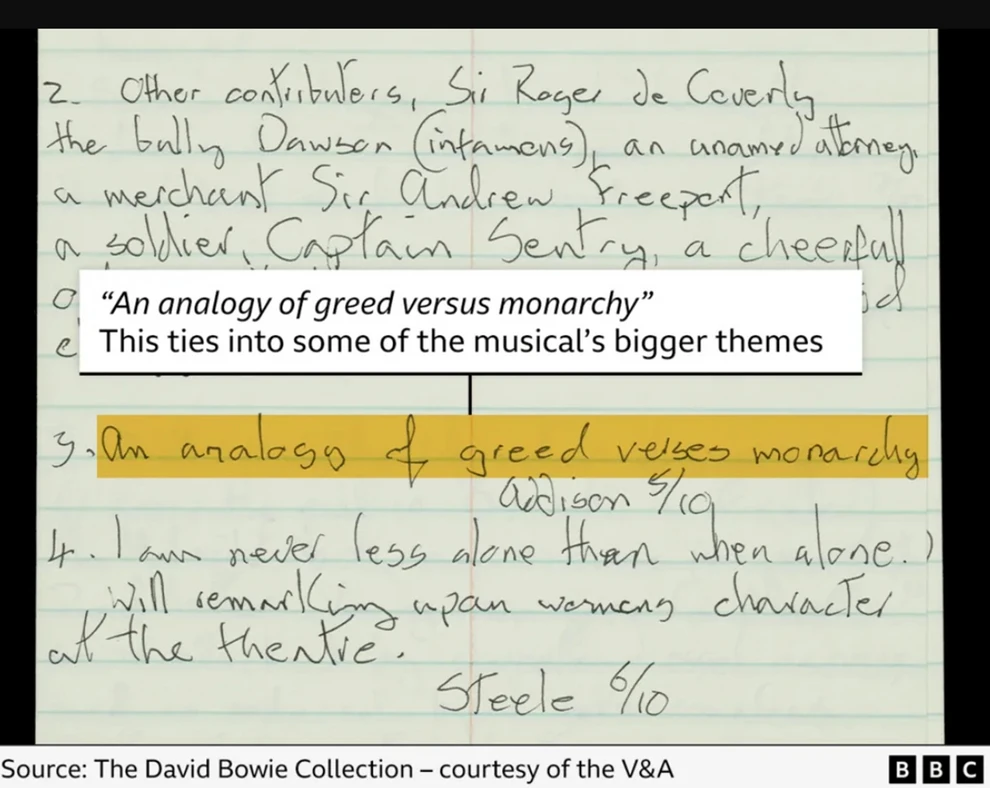 2. Other contributers, Sir Roger de Coverly
the bully Dawson (infamous), an unamed attorney,
a merchant Sir Andrew Freeport,
a soldier, Captain Sentry, a cheerfull
“An analogy of greed versus monarchy”
This ties into some of the musical’s bigger themes
3. An analogy of greed verses monarchy
Addison 5/10
4. I am never less alone than when alone.)
Will remarking upon womens character
at the theatre.
Steele 6/10
Source: The David Bowie Collection – courtesy of the V&A
BBC